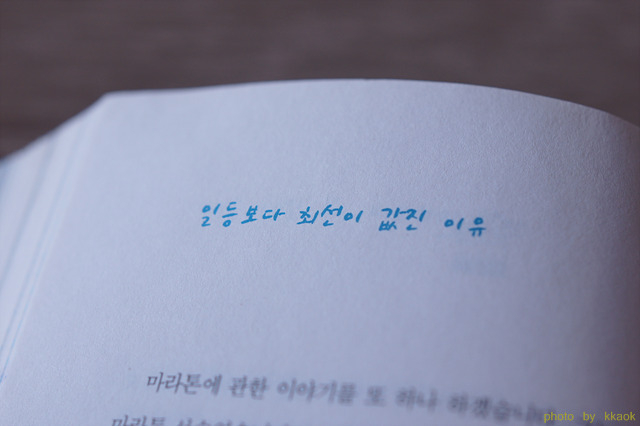 일등보다 최선이 값진 이유
마라톤에 관한 이야기를 또 하나 하겠습니
마라톤
photo by kkaok